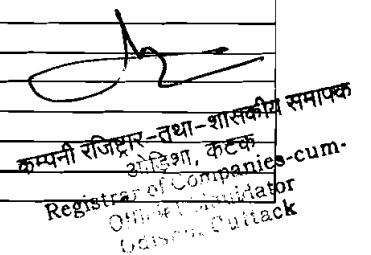 कम्पनी रजिष्ट्रार-तथा-शासकीय समापक
ओड़िशा, कटक
Registrar of Companies-cum-
Official Liquidator
Odisha, Cuttack